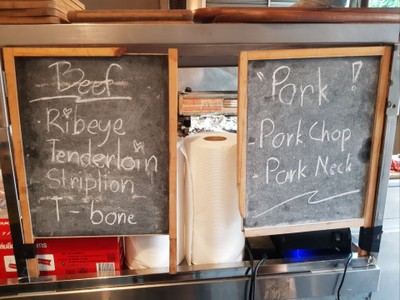 Beef
- Ribeye
Tenderloin
Stription
T-bone
"Pork !
- Pork Chop
- Pork Neck